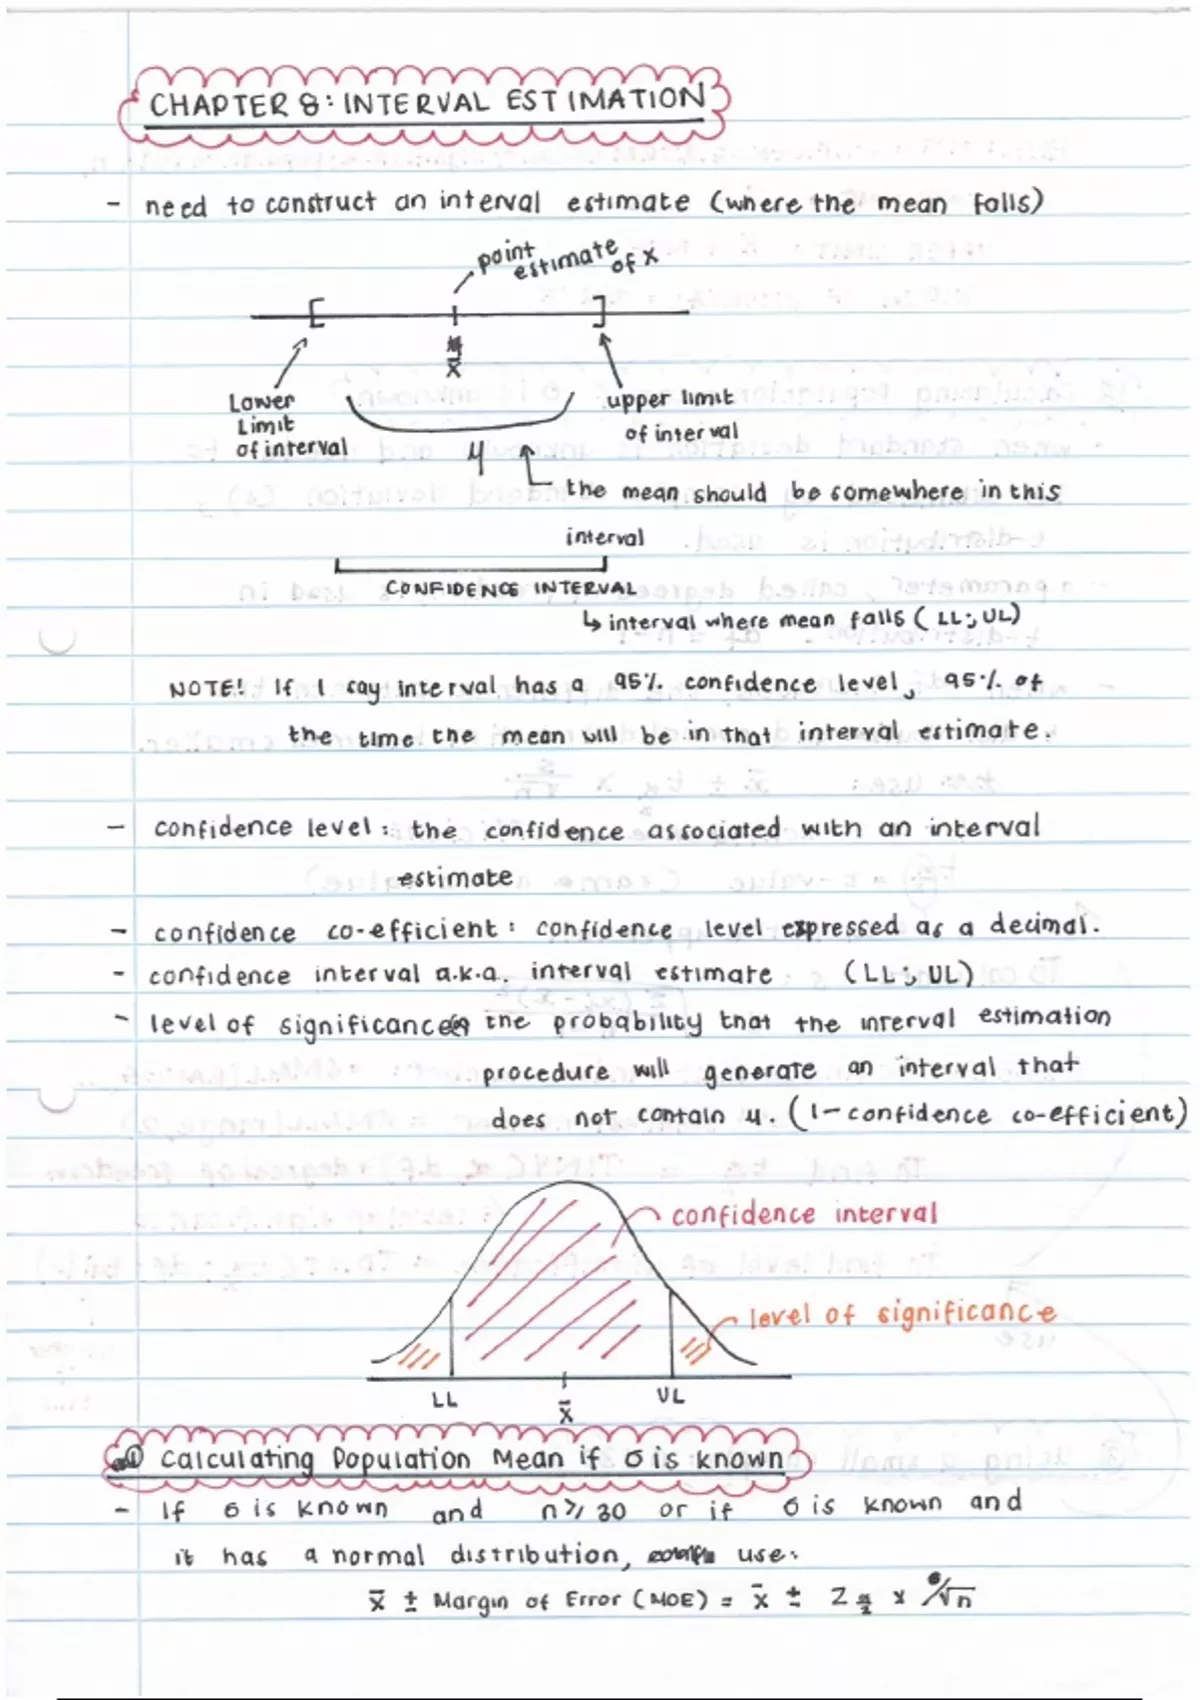 CHAPTER 8: INTERVAL ESTIMATION
- need to construct an interval estimate (where the mean falls)
point estimate of x
x̄
Lower Limit of interval
upper limit of interval
μ
the mean should be somewhere in this
interval
CONFIDENCE INTERVAL
↳ interval where mean falls (LL; UL)
NOTE! If I say interval has a 95% confidence level, 95% of
the time the mean will be in that interval estimate.
- confidence level: the confidence associated with an interval
estimate
- confidence co-efficient: confidence level expressed as a decimal.
- confidence interval a.k.a. interval estimate (LL; UL)
- level of significance the probability that the interval estimation
procedure will generate an interval that
does not contain μ. (1 - confidence co-efficient)
confidence interval
level of significance
LL
x̄
UL
① Calculating Population Mean if σ is known
- If σ is known and n ≥ 30 or if σ is known and
it has a normal distribution, use:
x̄ ± Margin of Error (MOE) = x̄ ± Z α/2 × σ/√n